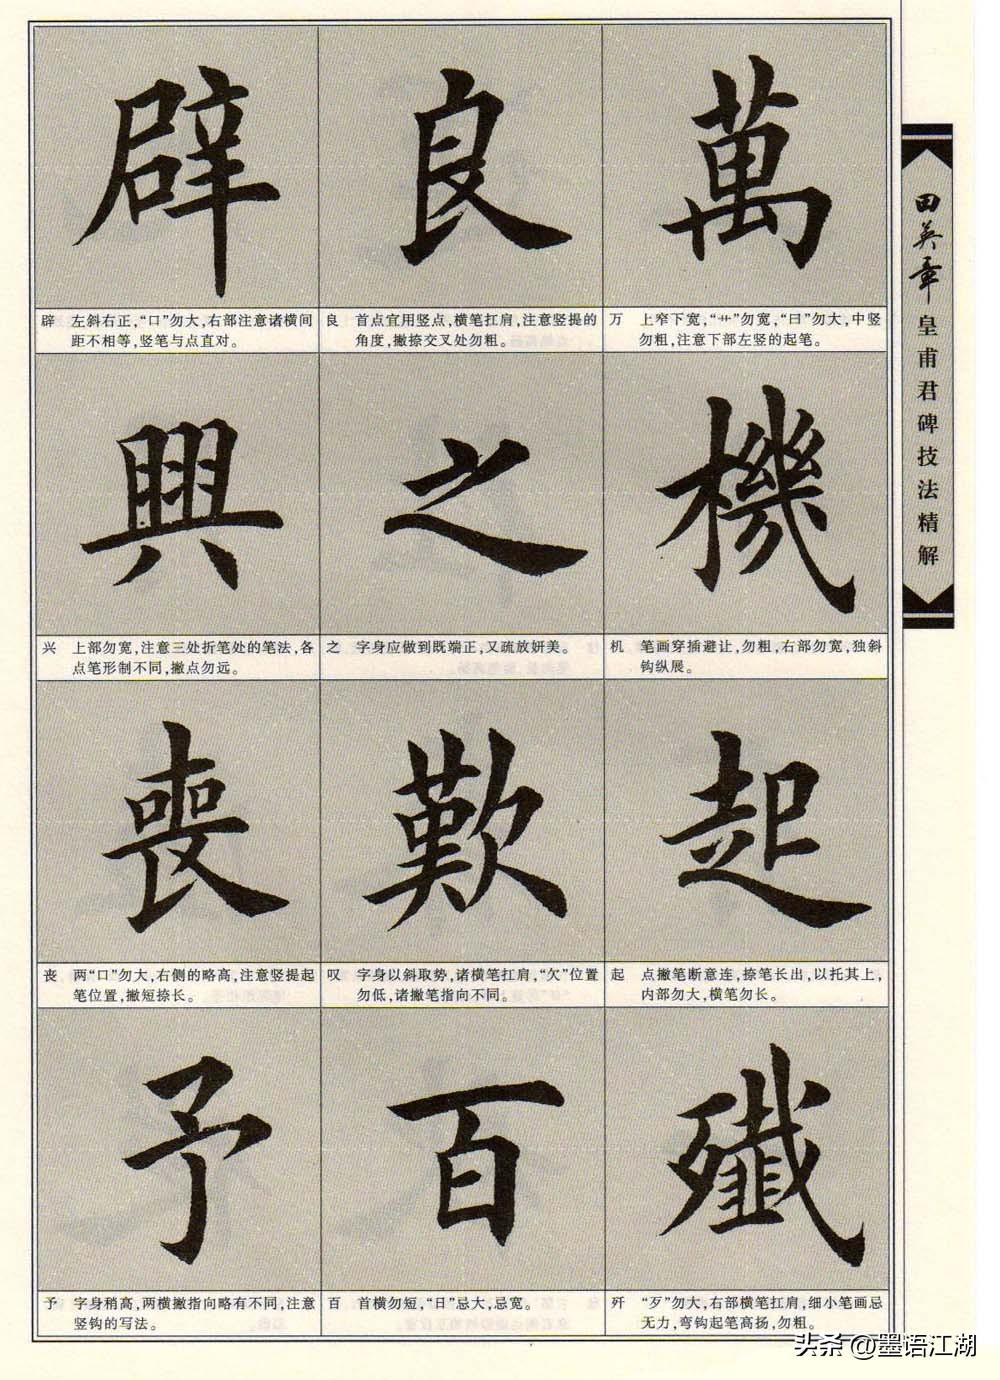 田英章 皇甫君碑技法精解
萬
万 上窄下宽，“艹”勿宽，“曰”勿大，中竖
勿粗，注意下部左竖的起笔。
機
机 笔画穿插避让，勿粗，右部勿宽，独斜
钩纵展。
起
起 点撇笔断意连，捺笔长出，以托其上，
内部勿大，横笔勿长。
殲
歼 “歹”勿大，右部横笔扛肩，细小笔画忌
无力，弯钩起笔高扬，勿粗。
良
良 首点宜用竖点，横笔扛肩，注意竖提的
角度，撇捺交叉处勿粗。
之
之 字身应做到既端正，又疏放妍美。
歎
叹 字身以斜取势，诸横笔扛肩，“欠”位置
勿低，诸撇笔指向不同。
百
百 首横勿短，“日”忌大，忌宽。
辟
辟 左斜右正，“口”勿大，右部注意诸横间
距不相等，竖笔与点直对。
興
兴 上部勿宽，注意三处折笔处的笔法，各
点笔形制不同，撇点勿远。
喪
丧 两“口”勿大，右侧的略高，注意竖提起
笔位置，撇短捺长。
予
予 字身稍高，两横撇指向略有不同，注意
竖钩的写法。
头条 @墨语江湖